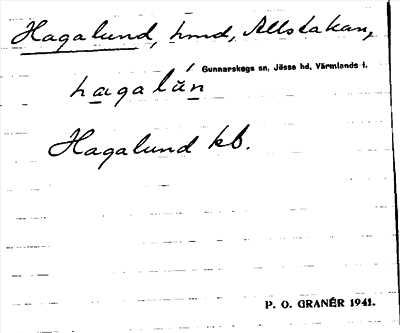 Hagalund, hmd, Allstakan,
Gunnarskogs sn, Jösse hd, Värmlands l.
hagalún
Hagalund kb.
P. O. GRANÉR 1941.